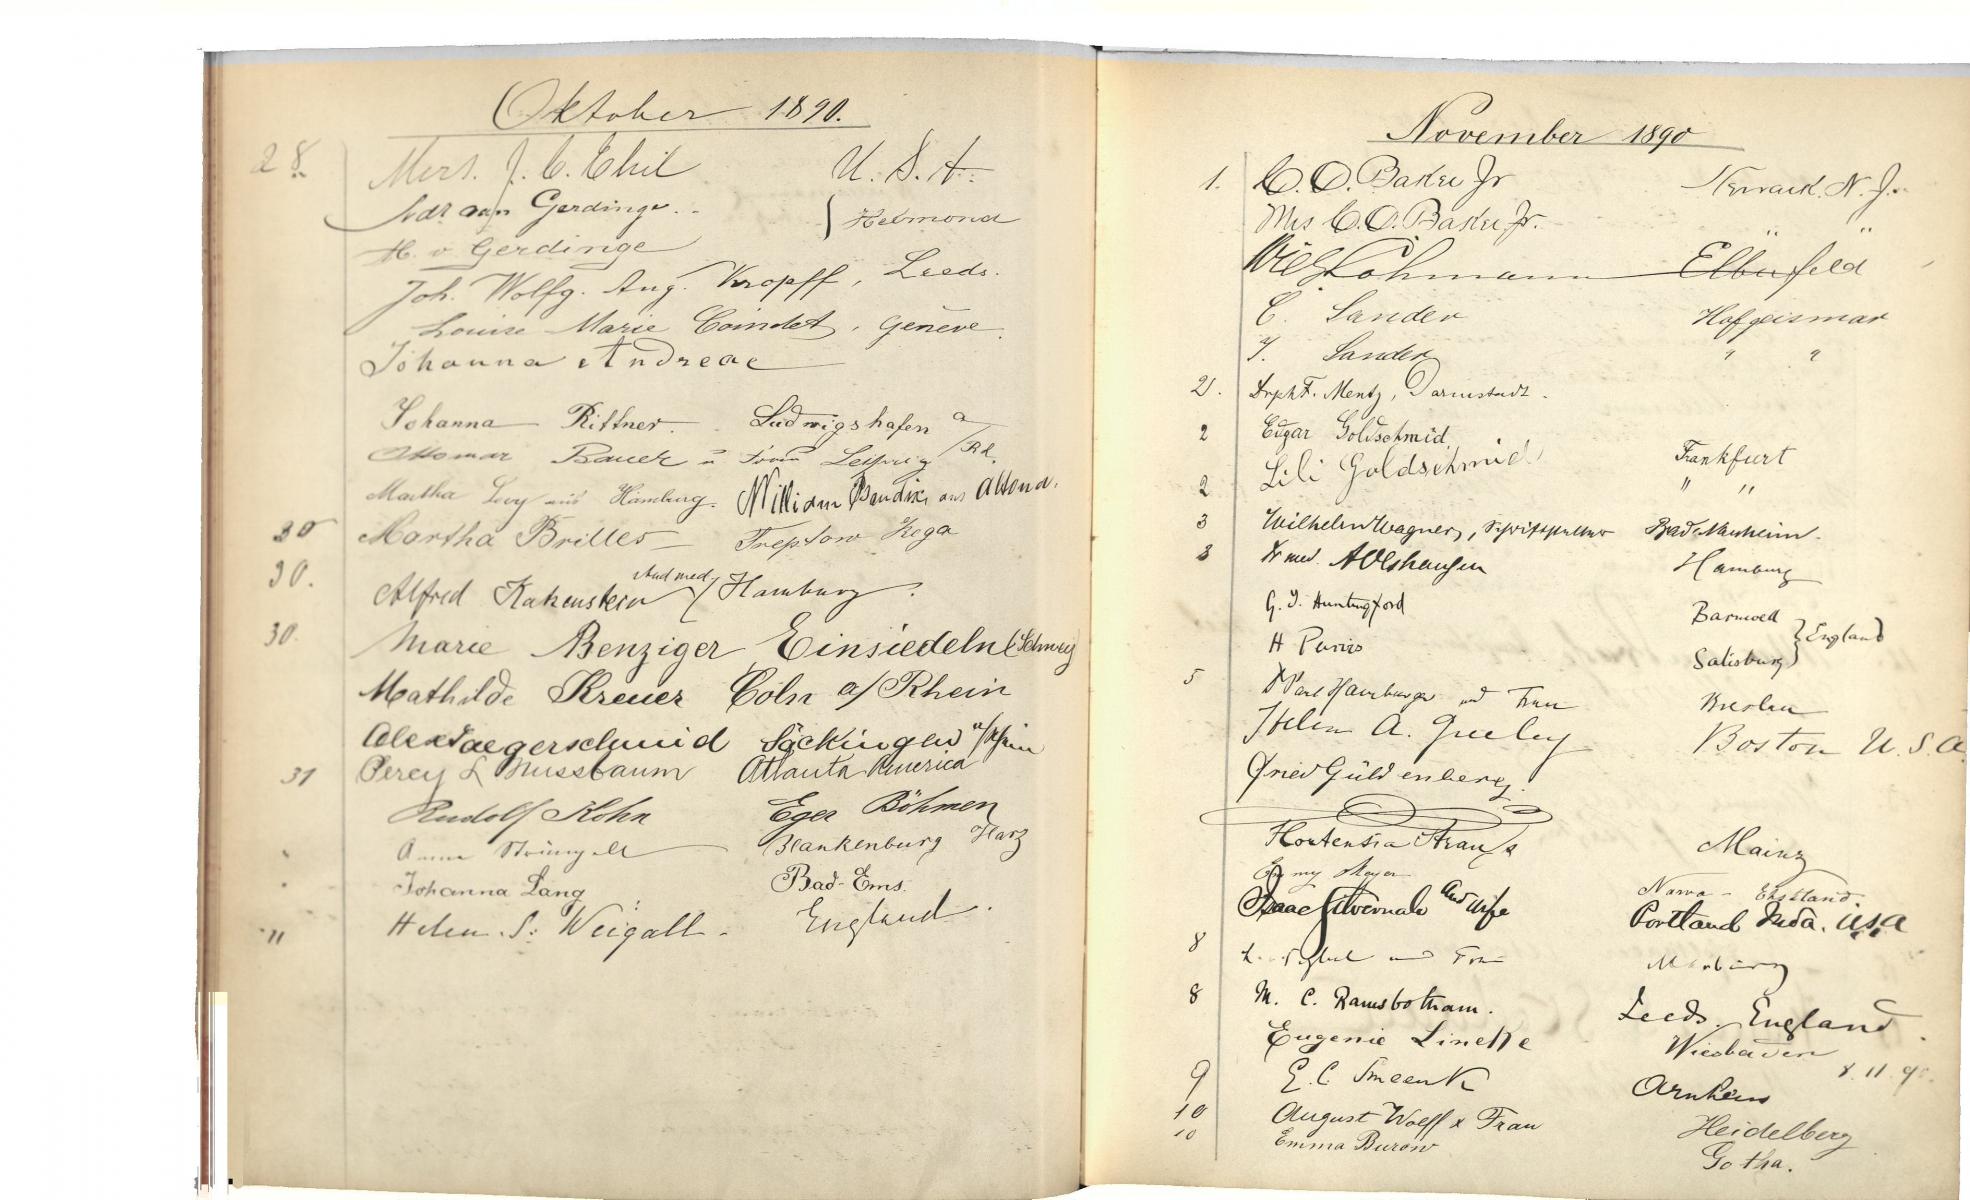 Oktober 1890.
28. Mrs. J. C. Ehil U. S. A.
Adr. van Gerdinge.. } Helmond
H. v Gerdinge
Joh. Wolfg. Aug. Kropff, Leeds.
Louise Marie Coindet, Genève.
Johanna Andreae
Johanna Rittner. Ludwigshafen a/Rh.
Ottomar Bauer u Leipzig
Martha Levy aus Hamburg. William Bendix aus Altona.
30 Martha Brilles Treptow Rega
30. Alfred Katzenstein stud med. Hamburg.
30. Marie Benziger Einsiedeln (Schweiz)
Mathilde Kreuer Cöln a/Rhein
Alex Jaegerschmid Säckingen a/Rhein
31 Percy L Nussbaum Atlanta America
Rudolf Kohn Eger Böhmen
Anna Blankenburg Harz
Johanna Lang Bad-Ems.
" Helen. S. Weigall. England.
November 1890
1. C. O. Baker Jr Newark. N. J.
Mrs C. O. Baker, Jr. " "
Lohmann Elberfeld
C. Sander Hofgeismar
J. Sander " "
2. F. Mentz, Darmstadt.
2 Edgar Goldschmid, Frankfurt
2 Lili Goldschmid, " "
3 Wilhelm Wagner, Schriftsteller Bad-Nauheim.
3 Dr med. A Olshausen Hamburg
G. J. Huntingford Barnwell } England
H Purvis Salisbury
5 Hamburger und Frau Breslau
Helen A. Greeley Boston U. S. A.
Fried Güldenberg.
Hortensia Strauss Mainz
Emmy Meyer Narva - Ehstland.
Isaac Silvernale and wife Portland Inda. USA
8 und Frau Marburg
8 M. C. Ramsbotham. Leeds. England.
Eugenie Lineke Wiesbaden 8. 11. 90.
9 E. C. Smeenk Arnhem
10 August Wolff & Frau Heidelberg
10 Emma Burow Gotha.